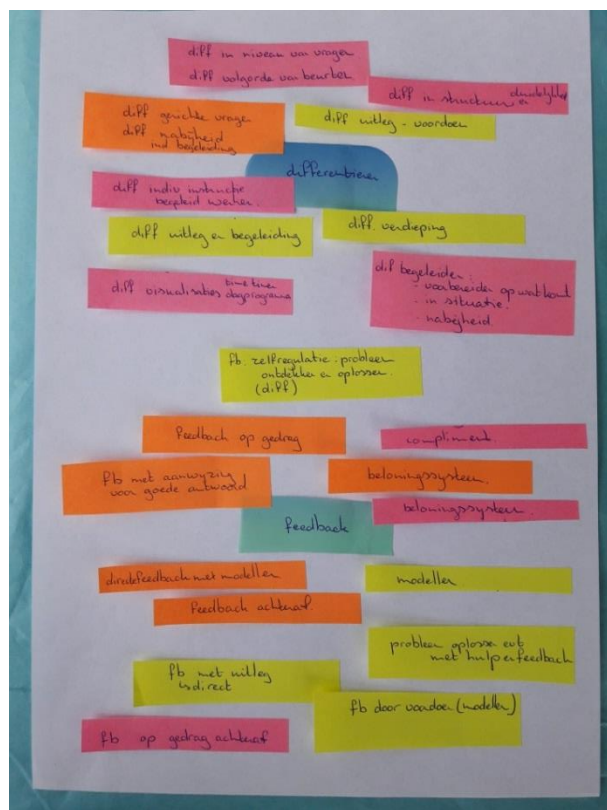 diff in niveau van vragen
diff volgorde van beurten
diff in structuur en duidelijkheid
diff gerichte vragen
diff nabijheid
ind begeleiding
diff uitleg - voordoen
differentiëren
diff indiv instructie
begeleid werken.
diff uitleg en begeleiding
diff. verdieping
diff visualisaties time timer
dagprogramma
dif begeleiden:
- voorbereiden op wat komt
- in situatie.
- nabijheid
fb. zelfregulatie. probleem
ontdekken en oplossen.
(diff)
Feedback op gedrag
compliment.
fb met aanwijzing
voor goede antwoord
beloningssysteem.
beloningssysteem.
feedback
directe feedback met modellen
modellen
Feedback achteraf.
probleem oplossen evt
met hulp en feedback
fb met uitleg
indirect
fb door voordoen (modellen)
fb op gedrag achteraf